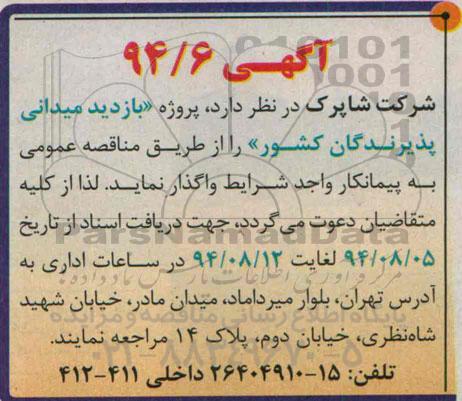 آگهـی ۹۴/۶
شرکت شاپرک در نظر دارد، پروژه «بازدید میدانی
پذیرنـدگان کشـور» را از طریـق مناقصه عمومی
بـه پیمانکار واجد شـرایط واگذار نمایـد. لذا از کلیه
متقاضیان دعوت می‌گردد، جهت دریافت اسناد از تاریخ
۹۴/۰۸/۰۵ لغایت ۹۴/۰۸/۱۲ در سـاعات اداری به
آدرس تهران، بلوار میرداماد، میدان مادر، خیابان شهید
شاه‌نظری، خیابان دوم، پلاک ۱۴ مراجعه نمایند.
تلفن: ۱۵-۲۶۴۰۴۹۱۰ داخلی ۴۱۱-۴۱۲
ParsNamadData
پایگاه اطلاع رسانی مناقصه و مزایده
۰۲۱-۸۸۳۴۹۶۷۰-۵